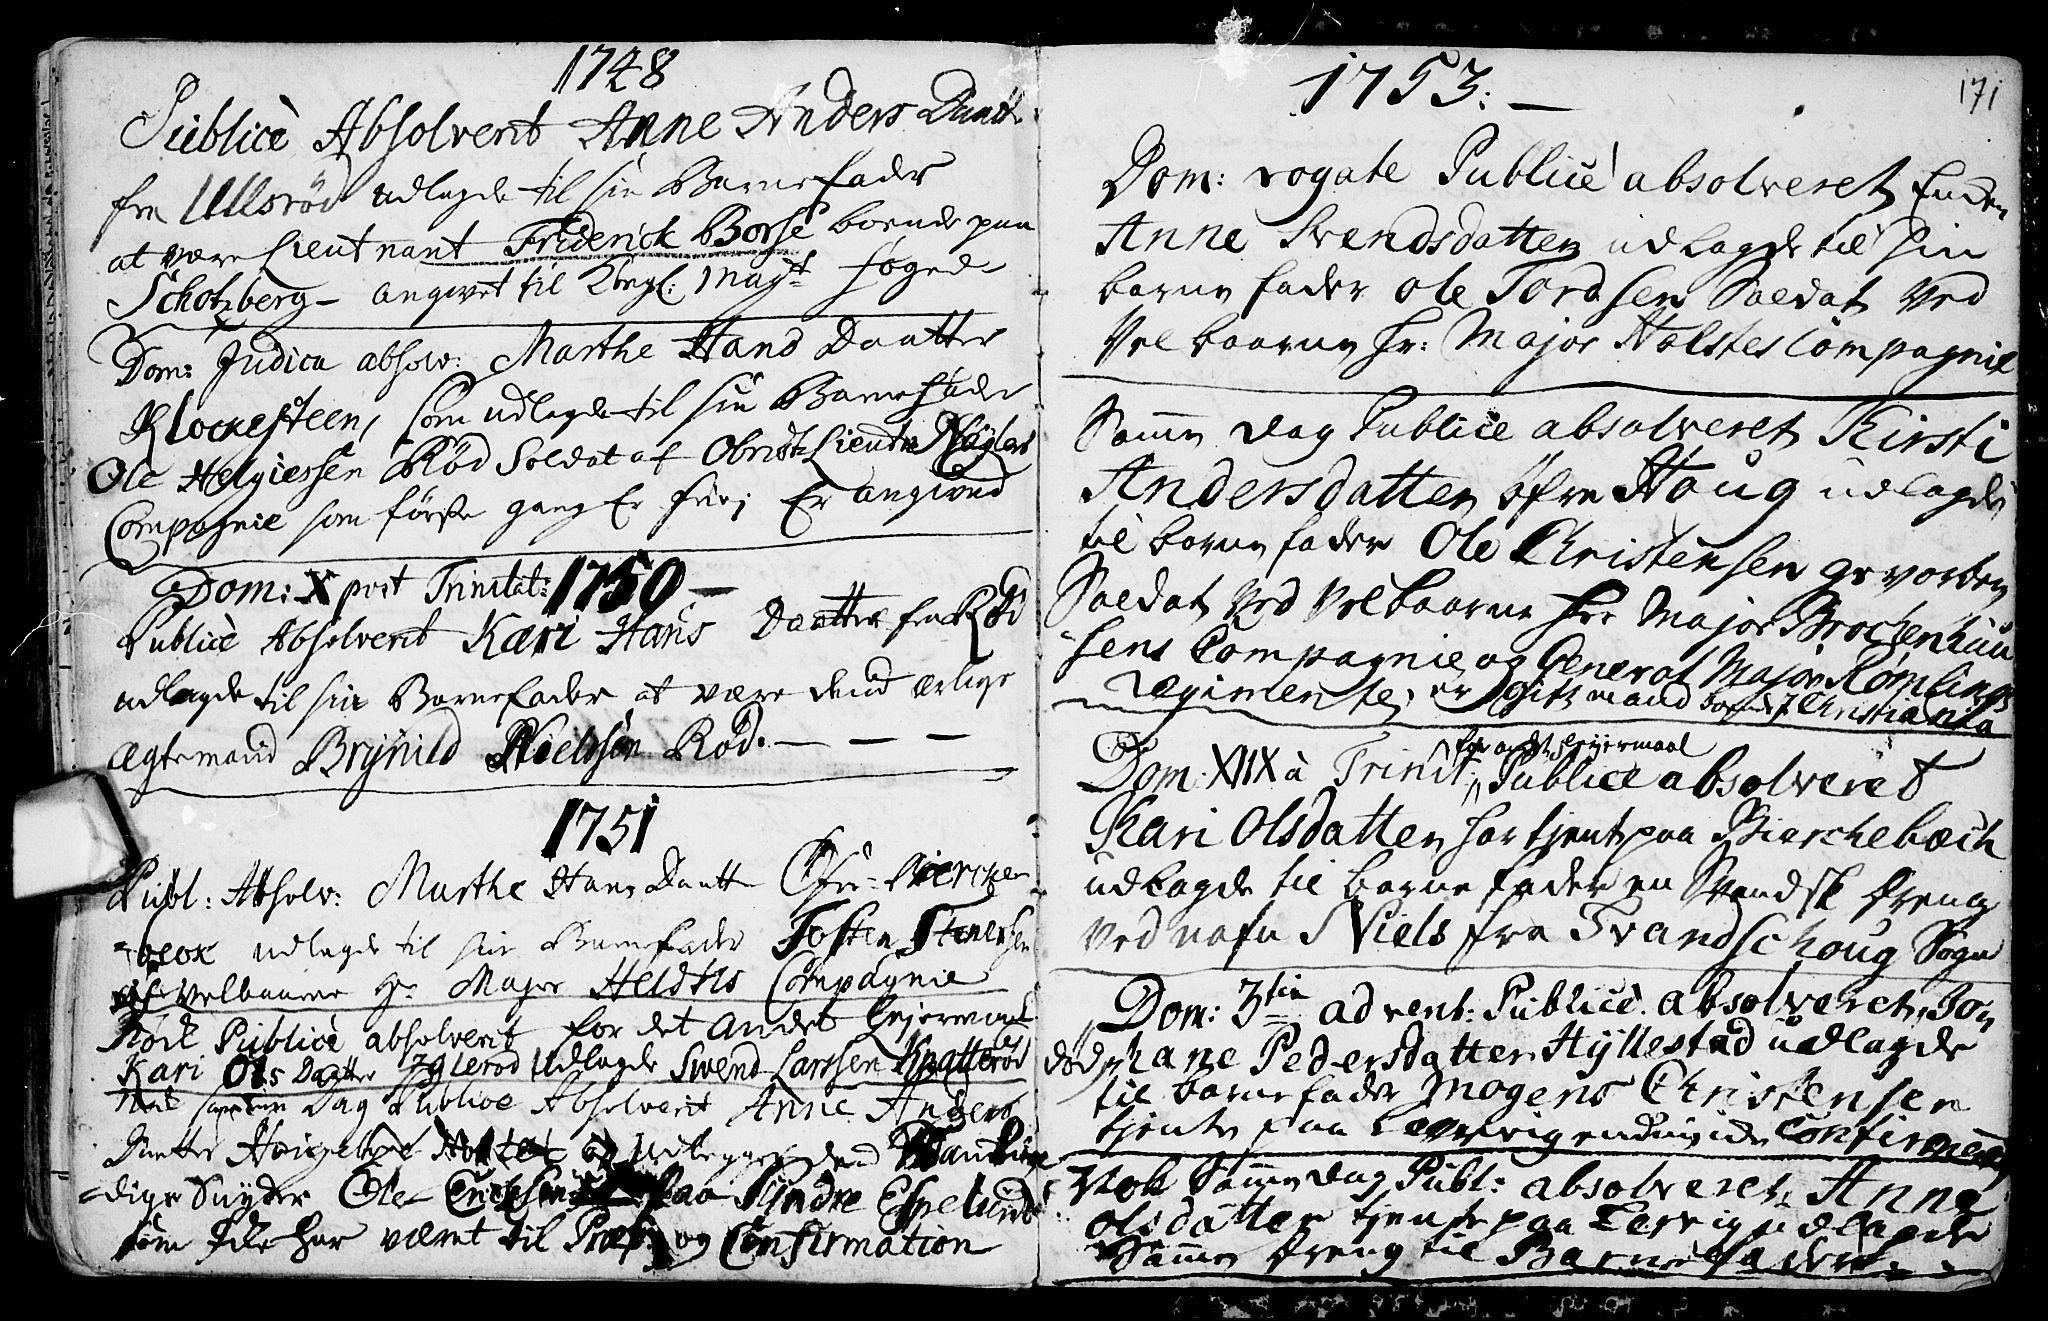 1748
Publicè Absolverit Anne Anders Daatt
fra Ullsrød udlagde til sin Barnefader
at være Lieutnant Friderick Borse boende paa
Schotzberg – angivet til Kongl: Mayts foged
Dom: Judica absolv: Marthe Hans Daatter
Klockesteen, som udlagde til sin Barnefader
Ole Helgiessen Rød Soldat af Obrist Lieutn
Compagnie som første gang Er for, Er angived
Dom: X post Trinitat: 1750 —
Publicè Absolverit Kari Hans Daatter fra Rød
udlagde til sin Barnefader at være dend ærlige
Ægtemand Brynild Nielssøn Rød. — — —
1751
Publ: Absolv: Marthe Hans Daatt Øfre-Biercke-
beck udlagde til sin Barnefader Tosten Stenersen
Velbaarne Hr Major Heldtes Compagnie
Publicè absolverit for det andet Lejermaal
Kari Ols Daatter Iglerød udlagde Swend Larssen Knatterød
Nok samme Dag Publice Absolverit Anne Anders
Datter udlegger dend
dige Snyder Ole paa Søndre Espelund
som Icke har været til Præst og Confirmation
171
1753: —
Dom: rogate Publicè absolveret
Anne Svendsdatter udlagde til sin
barne fader Ole Tordsen Soldat ved
Velbaarne Hr: Major Holstes Compagnie
Samme dag Publice absolveret Kirsti
Andersdatter Øfre Houg udlagde
til barne fader Ole Christensen gevorben
Soldat ved Velbaarne Her Major Brockenhuu
sens Compagnie og General Major Rømlings
Regimente, er gift mand boende i Christiania
for andet Leyermaal
Dom: XIIX à Trinit: Publice absolveret
Kari Olsdatter har tjent paa Bierchebæch
udlagde til barne fader en Svendsk dreng
ved nafn Niels fra Tvandschoug Sogn
Dom: 3tia advent: Publicè absolveret Jo
hane Pedersdatter Hyllestad udlagde
til barne fader Mogens Christensen
tjente paa Lervig confirmered
Nok Samme dag Publ: absolveret Anne
Olsdatter tjente paa Lervig udlagde
Samme dreng til Barnefader